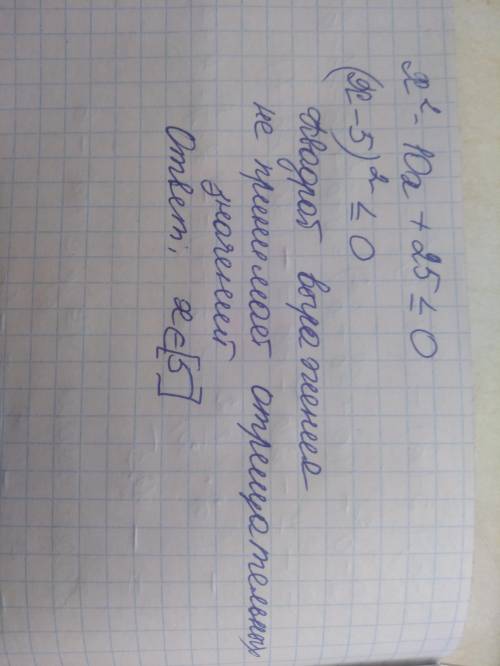 x² - 10x + 25 ≤ 0
(x - 5)² ≤ 0
Квадрат выражения
не принимает отрицательных
значений
Ответ: x ∈ [5]